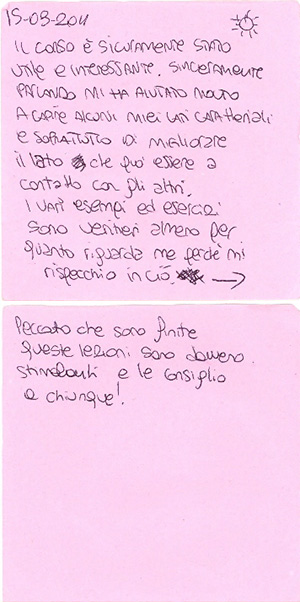 15-03-2011
IL CORSO È SICURAMENTE STATO
UTILE E INTERESSANTE. SINCERAMENTE
PARLANDO MI HA AIUTATO MOLTO
A CAPIRE ALCUNI MIEI LATI CARATTERIALI
E SOPRATTUTTO DI MIGLIORARE
il lato che può essere a
contatto con gli altri.
I vari esempi ed esercizi
sono veritieri almeno per
quanto riguarda me perchè mi
rispecchio in ciò. →
Peccato che sono finite
queste lezioni sono davvero
stimolanti e le consiglio
a chiunque!